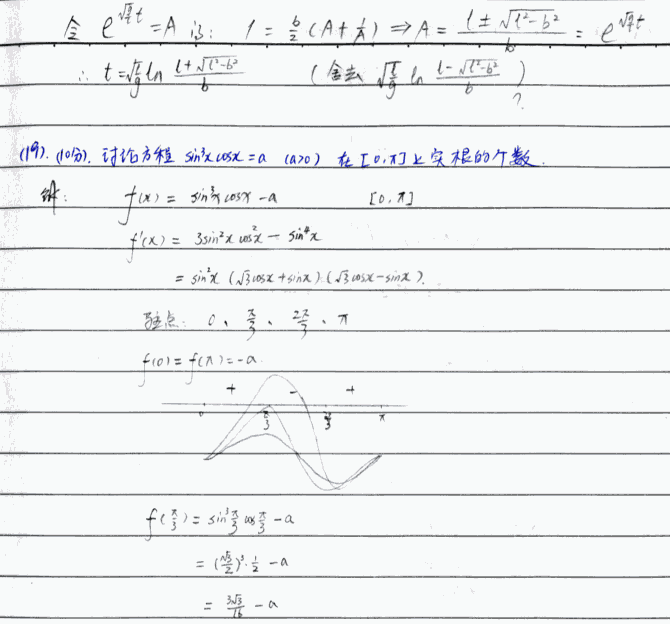 令 e^{√(g/l) t} = A 则: l = b/2 (A + 1/A) ⇒ A = (l ± √(l²-b²))/b = e^{√(g/l) t}
∴ t = √(l/g) ln (l+√(l²-b²))/b (舍去 √(l/g) ln (l-√(l²-b²))/b) ?
(19). (10分). 讨论方程 sin³x cosx = a (a>0) 在 [0, π] 上实根的个数.
解: f(x) = sin³x cosx - a [0, π]
f'(x) = 3sin²x cos²x - sin⁴x
= sin²x (√3cosx + sinx)·(√3cosx - sinx).
驻点: 0、π/3、2π/3、π
f(0) = f(π) = -a
+ - +
0 π/3 2π/3 π
f(π/3) = sin³π/3 cosπ/3 - a
= (√3/2)³·1/2 - a
= 3√3/16 - a